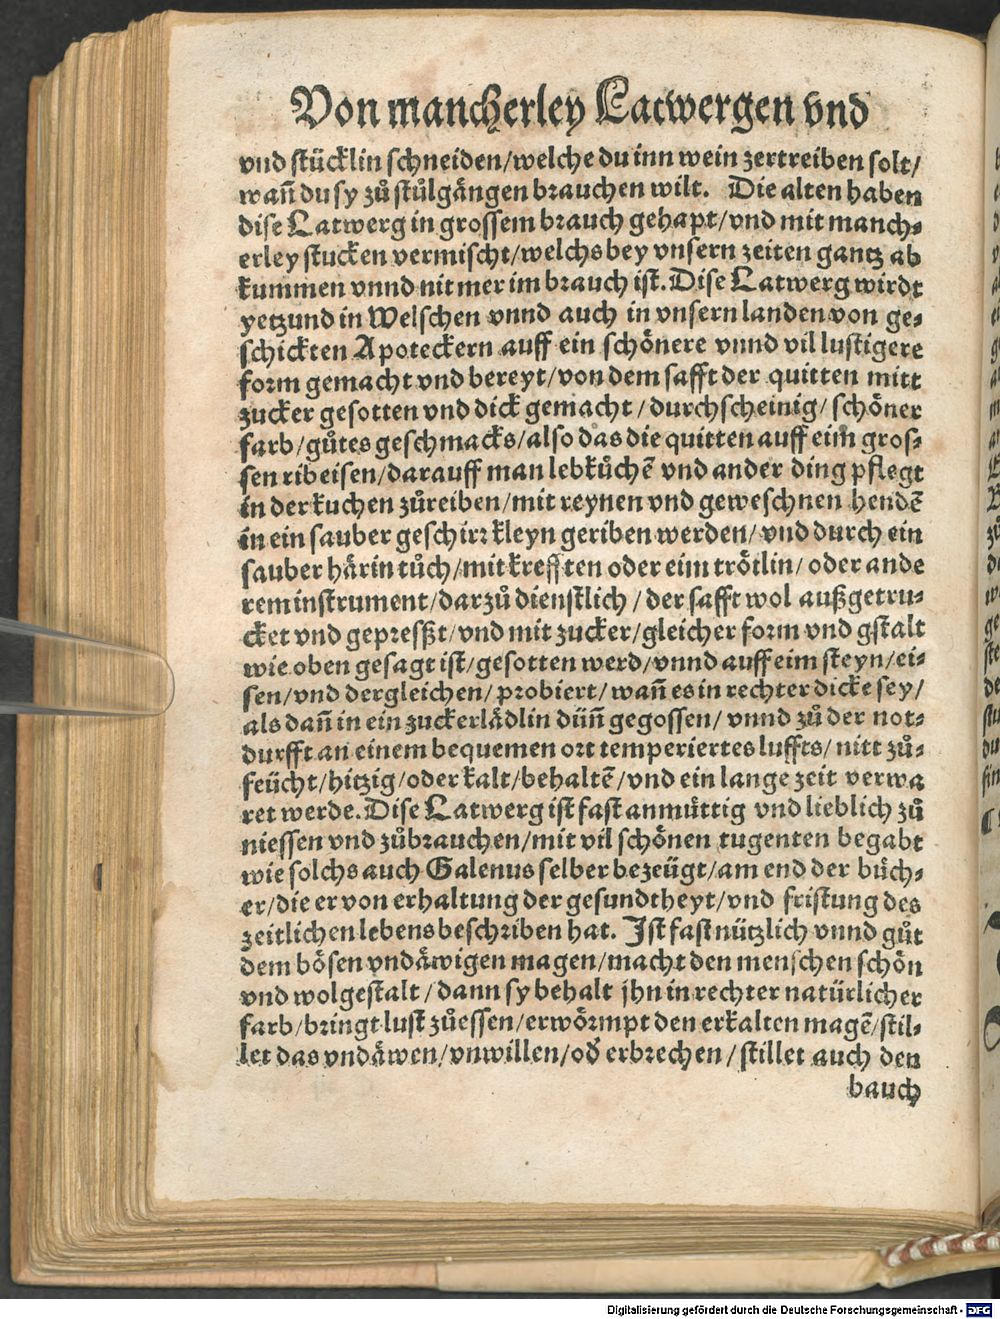 Von mancherley Latwergen vnd
vnd stücklin schneiden/welche du inn wein zertreiben solt/
wañ du sy zů stůlgängen brauchen wilt. Die alten haben
dise Latwerg in grossem brauch gehapt/vnd mit manch⸗
erley stucken vermischt/welchs bey vnsern zeiten gantz ab
kummen vnnd nit mer im brauch ist. Dise Latwerg wirdt
yetzund in Welschen vnnd auch in vnsern landen von ge⸗
schickten Apoteckern auff ein schönere vnnd vil lustigere
form gemacht vnd bereyt/von dem safft der quitten mitt
zucker gesotten vnd dick gemacht/durchscheinig/schöner
farb/gůtes geschmacks/also das die quitten auff eim gros⸗
sen ribeisen/darauff man lebkůchē vnd ander ding pflegt
in der kuchen zůreiben/mit reynen vnd geweschnen hendē
in ein sauber geschirr kleyn geriben werden/vnd durch ein
sauber härin tůch/mit krefften oder eim trötlin/oder ande
rem instrument/darzů dienstlich/der safft wol außgetru⸗
cket vnd gepreßt/vnd mit zucker/gleicher form vnd gstalt
wie oben gesagt ist/gesotten werd/vnnd auff eim steyn/ei⸗
sen/vnd dergleichen/probiert/wañ es in rechter dicke sey/
als dañ in ein zuckerlädlin düñ gegossen/vnnd zů der not⸗
durfft an einem bequemen ort temperiertes luffts/nitt zů⸗
feücht/hitzig/oder kalt/behaltē/vnd ein lange zeit verwa
ret werde. Dise Latwerg ist fast anmüttig vnd lieblich zů
niessen vnd zůbrauchen/mit vil schönen tugenten begabt
wie solchs auch Galenus selber bezeügt/am end der büch⸗
er/die er von erhaltung der gesundtheyt/vnd fristung des
zeitlichen lebens beschriben hat. Ist fast nützlich vnnd gůt
dem bösen vndäwigen magen/macht den menschen schön
vnd wolgestalt/dann sy behalt jhn in rechter natürlicher
farb/bringt lust zůessen/erwörmpt den erkalten magē/stil⸗
let das vndäwen/vnwillen/oď erbrechen/stillet auch den
bauch
Digitalisierung gefördert durch die Deutsche Forschungsgemeinschaft - DFG